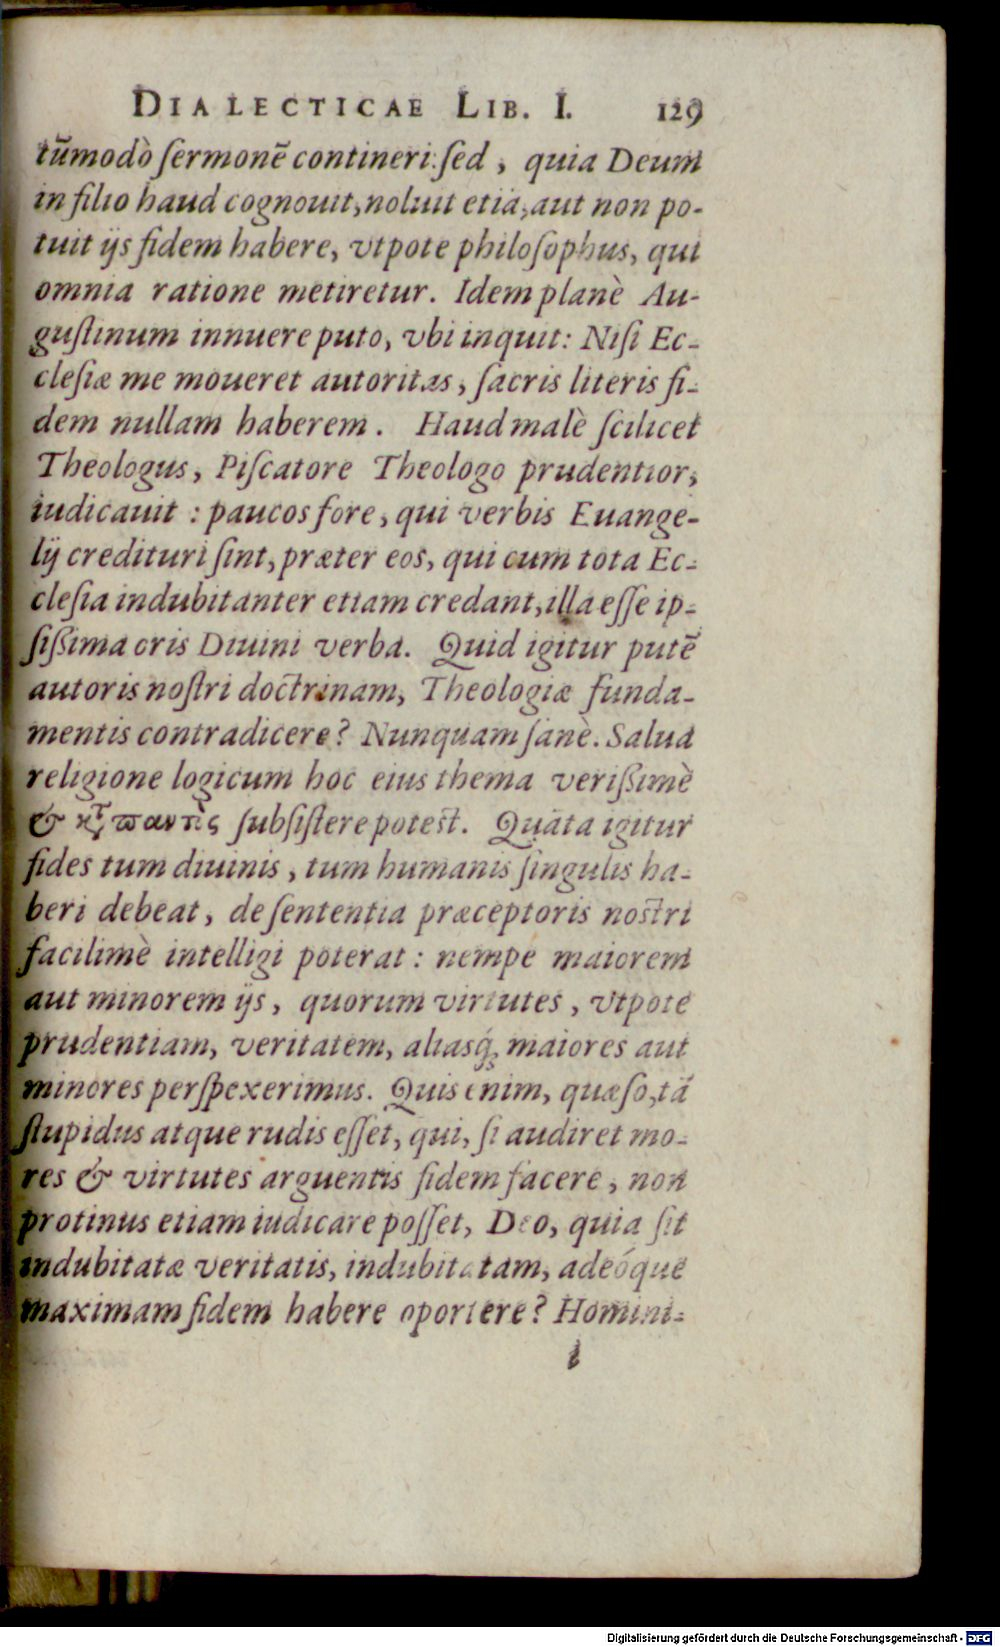 DIALECTICAE LIB. I. 129
tũmodò ſermonẽ contineri: ſed, quia Deum
in filio haud cognouit, noluit etiã, aut non po-
tuit ijs fidem habere, vtpote philoſophus, qui
omnia ratione metiretur. Idem planè Au-
guſtinum innuere puto, vbi inquit: Niſi Ec-
cleſiæ me moueret autoritas, ſacris literis fi-
dem nullam haberem. Haud malè ſcilicet
Theologus, Piſcatore Theologo prudentior,
iudicauit: paucos fore, qui verbis Euange-
lij credituri ſint, præter eos, qui cum tota Ec-
cleſia indubitanter etiam credant, illa eſſe ip-
ſißima oris Diuini verba. Quid igitur putẽ
autoris noſtri doctrinam, Theologiæ funda-
mentis contradicere? Nunquam ſanè. Salua
religione logicum hoc eius thema verißimè
& κτ̀ παντὸς ſubſiſtere poteſt. Quãta igitur
fides tum diuinis, tum humanis ſingulis ha-
beri debeat, de ſententia præceptoris noſtri
facilimè intelligi poterat: nempe maiorem
aut minorem ijs, quorum virtutes, vtpote
prudentiam, veritatem, aliasq́; maiores aut
minores perſpexerimus. Quis enim, quæſo, tã
ſtupidus atque rudis eſſet, qui, ſi audiret mo-
res & virtutes arguentis fidem facere, non
protinus etiam iudicare poſſet, Deo, quia ſit
indubitatæ veritatis, indubitatam, adeóque
maximam fidem habere oportere? Homini-
i
Digitalisierung gefördert durch die Deutsche Forschungsgemeinschaft - DFG